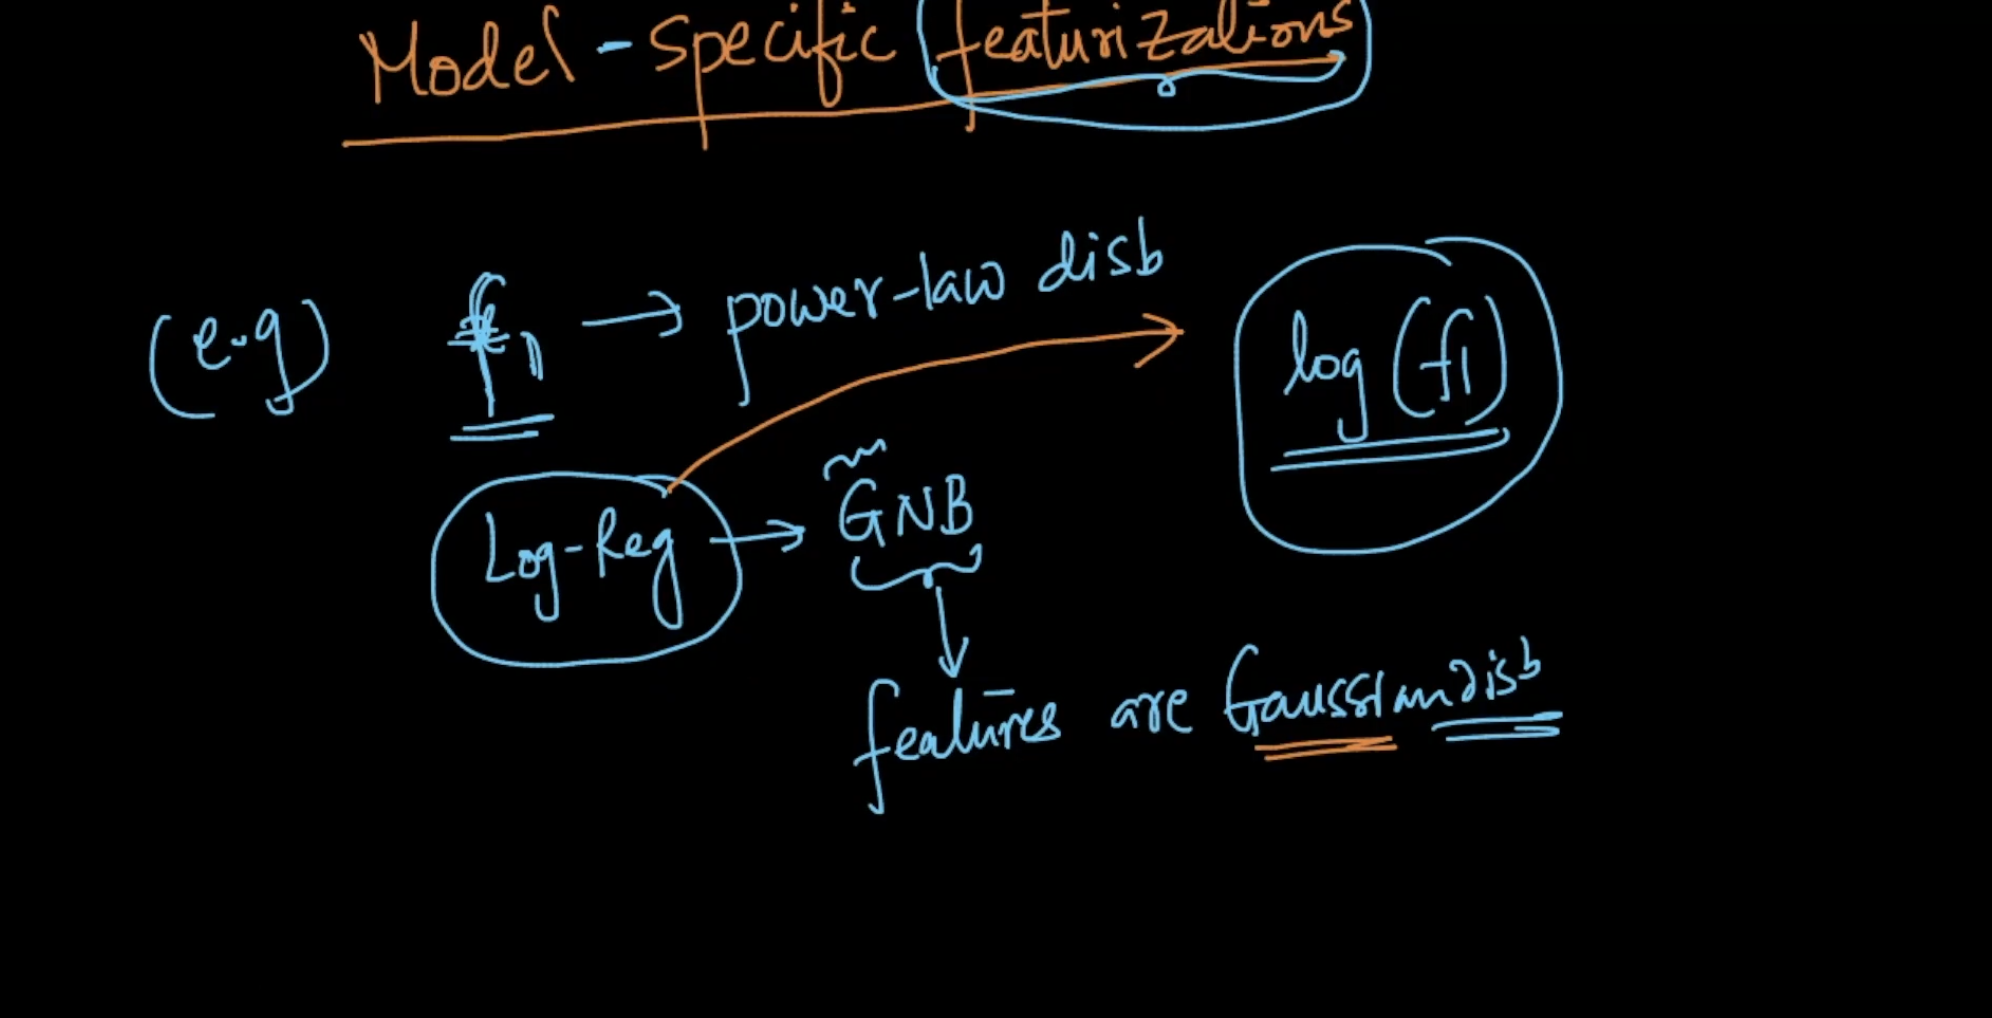 Model-specific featurizations
(e.g) f1 → power-law disb
log (f1)
Log-Reg → GNB
features are Gaussian disb